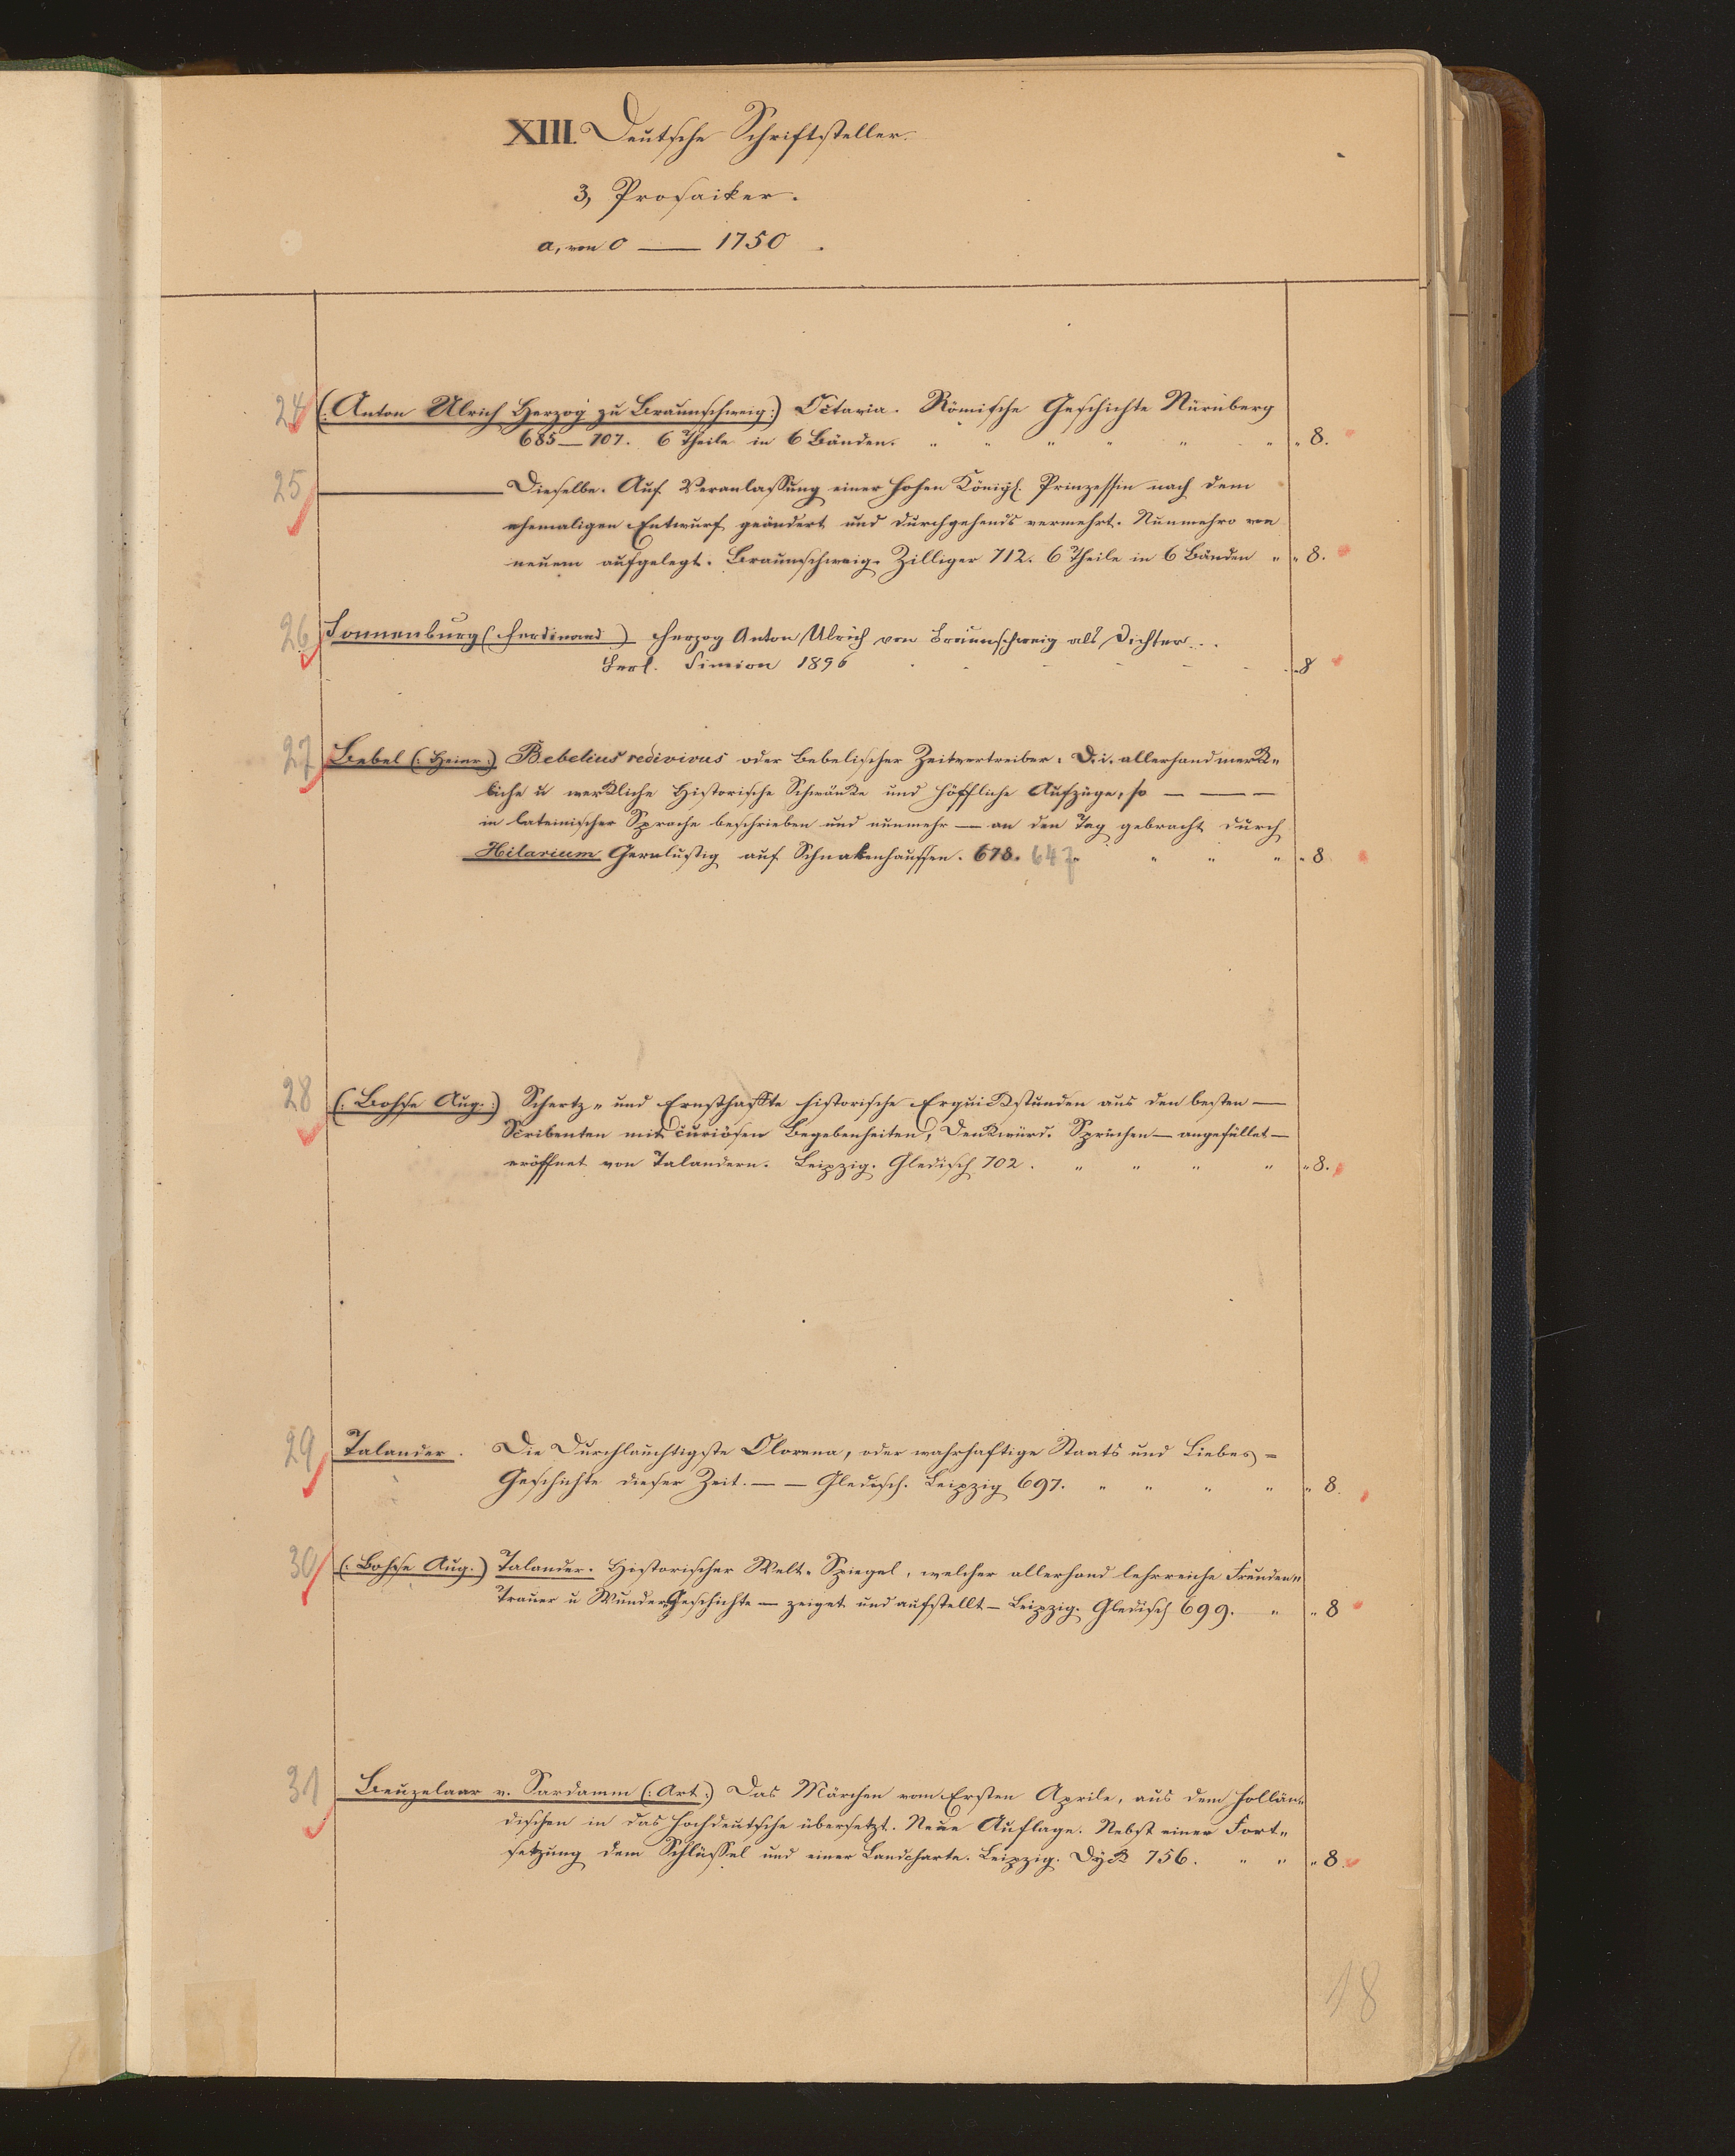 XIII. Deutsche Schriftsteller.
3, Prosaiker.
a, von 0 — 1750.
24 (: Anton Ulrich Herzog zu Braunschweig :) Octavia. Römische Geschichte Nürnberg
685—707. 6 Theile in 6 Bänden. " " " " " " " 8.
25 — Dieselbe. Auf Veranlassung einer hohen Königl. Prinzessin nach dem
ehemaligen Entwurf geändert und durchgehends vermehrt. Nunmehro von
neuem aufgelegt. Braunschweig. Zilliger 712. 6 Theile in 6 Bänden " " 8.
26 Sonnenburg (Ferdinand) Herzog Anton Ulrich von Braunschweig als Dichter...
Berl. Simion 1896 - - - - - - 8
27 Bebel (: Heinr :) Bebelius redivivus oder Bebelischer Zeitvertreiber. D. i. allerhand merck"
liche u werckliche Historische Schwäncke und höffliche Aufzüge, so — — —
in lateinischer Sprache beschrieben und nunmehr — an den Tag gebracht durch
Hilarium Gernlustig auf Schnakenhaussen. 678. 647 " " " " 8
28 (: Bohse Aug. :) Schertz " und Ernsthaffte historische Erquickstunden aus den besten —
Scribenten mit curiösen Begebenheiten, Denckwürd. Sprüchen — angefüllet —
eröffnet von Talandern. Leipzig. Gleditsch 702. " " " " " 8.
29 Talander. Die Durchlauchtigste Olorena, oder wahrhaftige Staats und Liebes =
Geschichte dieser Zeit. — — Gledisch. Leipzig 697. " " " " " 8.
30 (: Bohse Aug. ) Talander. Historischer Welt-Spiegel, welcher allerhand lehrreiche Freuden"
Trauer u Wunder Geschichte — zeiget und aufstellt — Leipzig. Gledisch 699. " " 8
31 Beuzelaar v. Sardamm (: Art :) Das Märchen vom Ersten Aprile, aus dem Hollän"
dischen in das Hochdeutsche übersetzt. Neue Auflage. Nebst einer Fort"
setzung dem Schlüssel und einer Landcharte. Leipzig. Dyck 756. " " " 8.
18